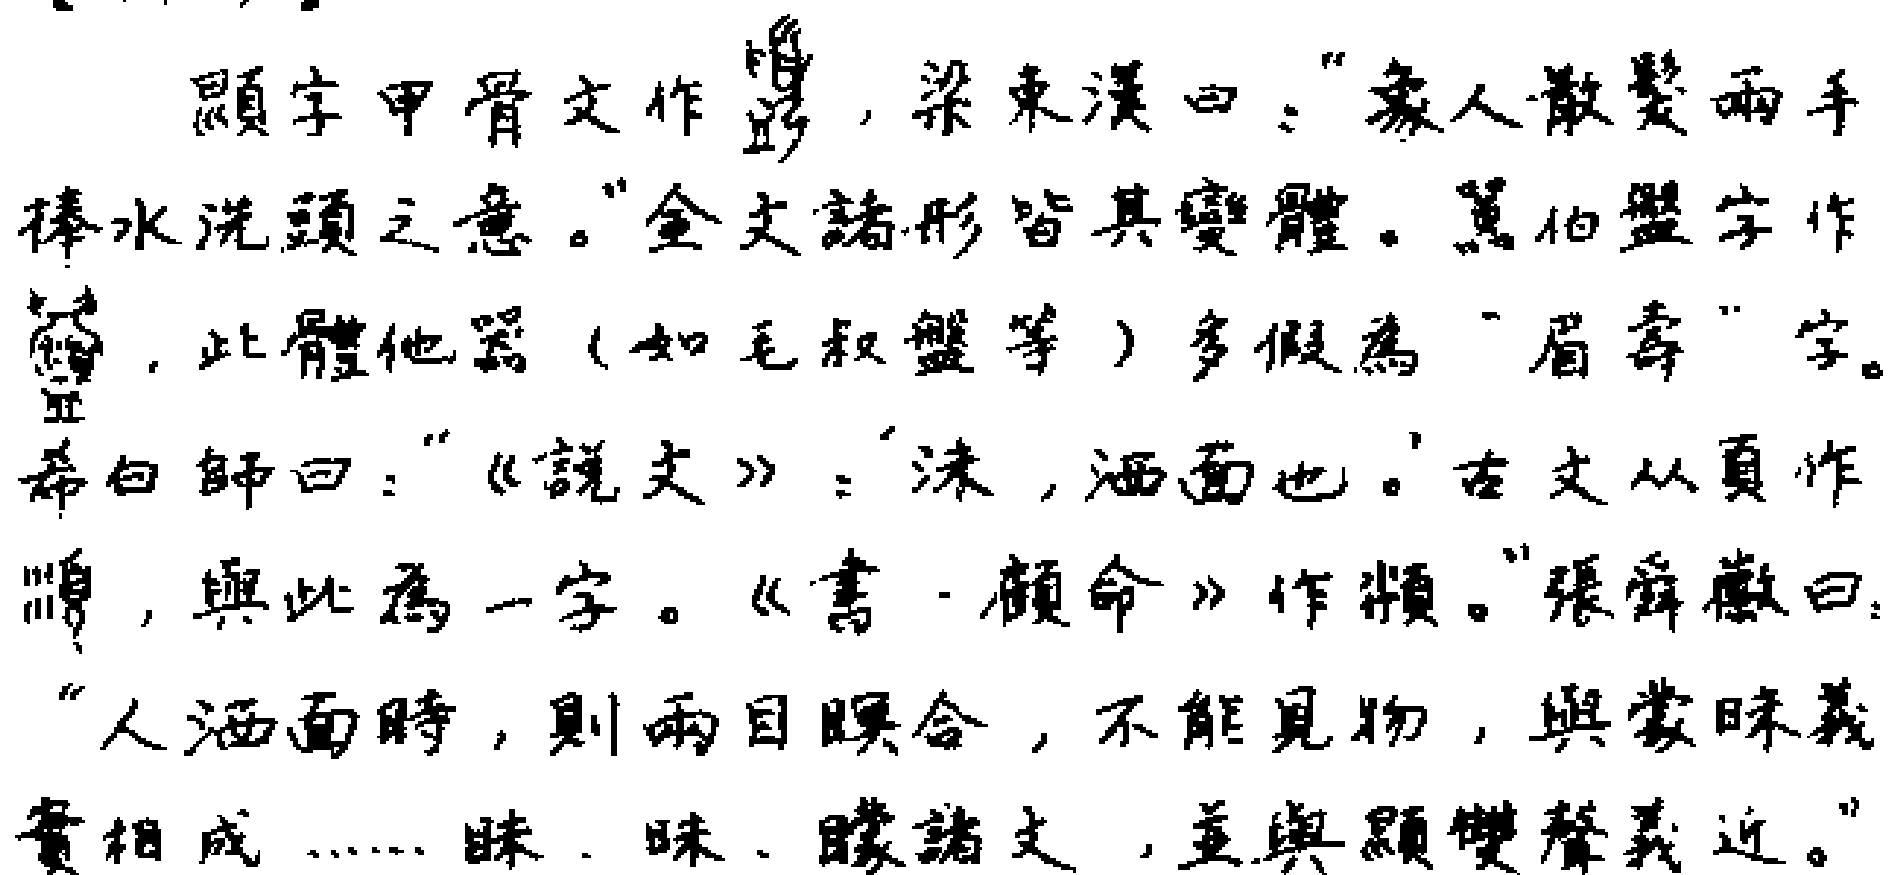 顯字甲骨文作，梁東漢曰：“象人散髮兩手
捧水洗頭之意。”金文諸形皆其變體。篙伯盤字作
，此體他器（如毛叔盤等）多假為“眉壽”字。
希白師曰：“《説文》：‘沬，洒面也。’古文从頁作
，與此為一字。《書·顧命》作頮。”張舜徽曰：
“人洒面時，則兩目瞑合，不能見物，與蒙昧義
實相成……眛、昧、矇諸文，並與顯雙聲義近。”